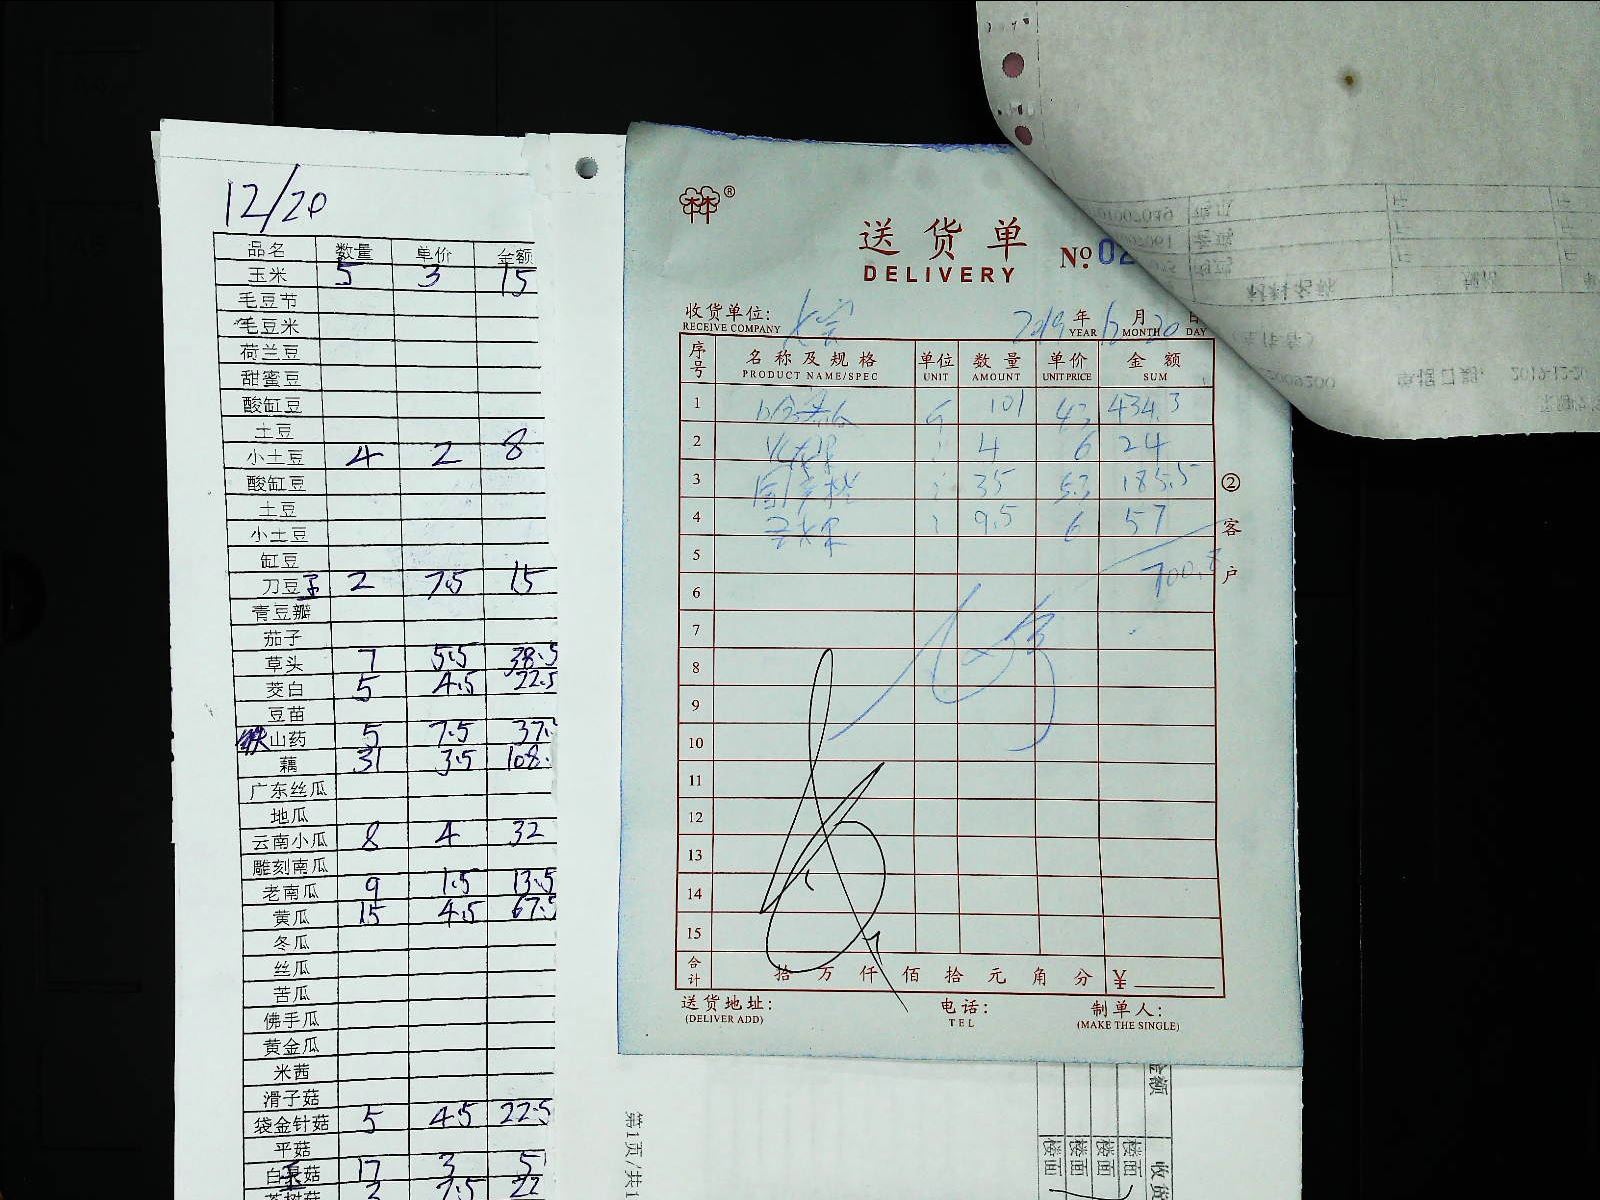 12/20
品名 数量 单价 金额
玉米 5 3 15
毛豆节
毛豆米
荷兰豆
甜蜜豆
酸缸豆
土豆
小土豆 4 2 8
酸缸豆
土豆
小土豆
缸豆
刀豆 2 7.5 15
青豆瓣
茄子
草头 7 5.5 38.5
茭白 5 4.5 22.5
豆苗
铁山药 5 7.5 37.
藕 31 3.5 108.
广东丝瓜
地瓜
云南小瓜 8 4 32
雕刻南瓜
老南瓜 9 1.5 13.5
黄瓜 15 4.5 67.5
冬瓜
丝瓜
苦瓜
佛手瓜
黄金瓜
米茜
滑子菇
袋金针菇 5 4.5 22.5
平菇
白玉菇 17 3 51
茶树菇 3 7.5 22
林林®
送货单
DELIVERY
No 02
收货单位:
RECEIVE COMPANY
2019 年 12 月 20 日
YEAR MONTH DAY
序号 名称及规格 单位 数量 单价 金额
PRODUCT NAME/SPEC UNIT AMOUNT UNIT PRICE SUM
1 101 43 434.3
2 4 6 24
3 35 5.3 185.5
4 9.5 6 57
5
6 700.8
7
8
9
10
11
12
13
14
15
合计 拾万仟佰拾元角分 ¥
②客户
送货地址:
(DELIVER ADD)
电话:
TEL
制单人:
(MAKE THE SINGLE)
第1页/共1
金额
楼面 楼面 楼面 楼面 收货